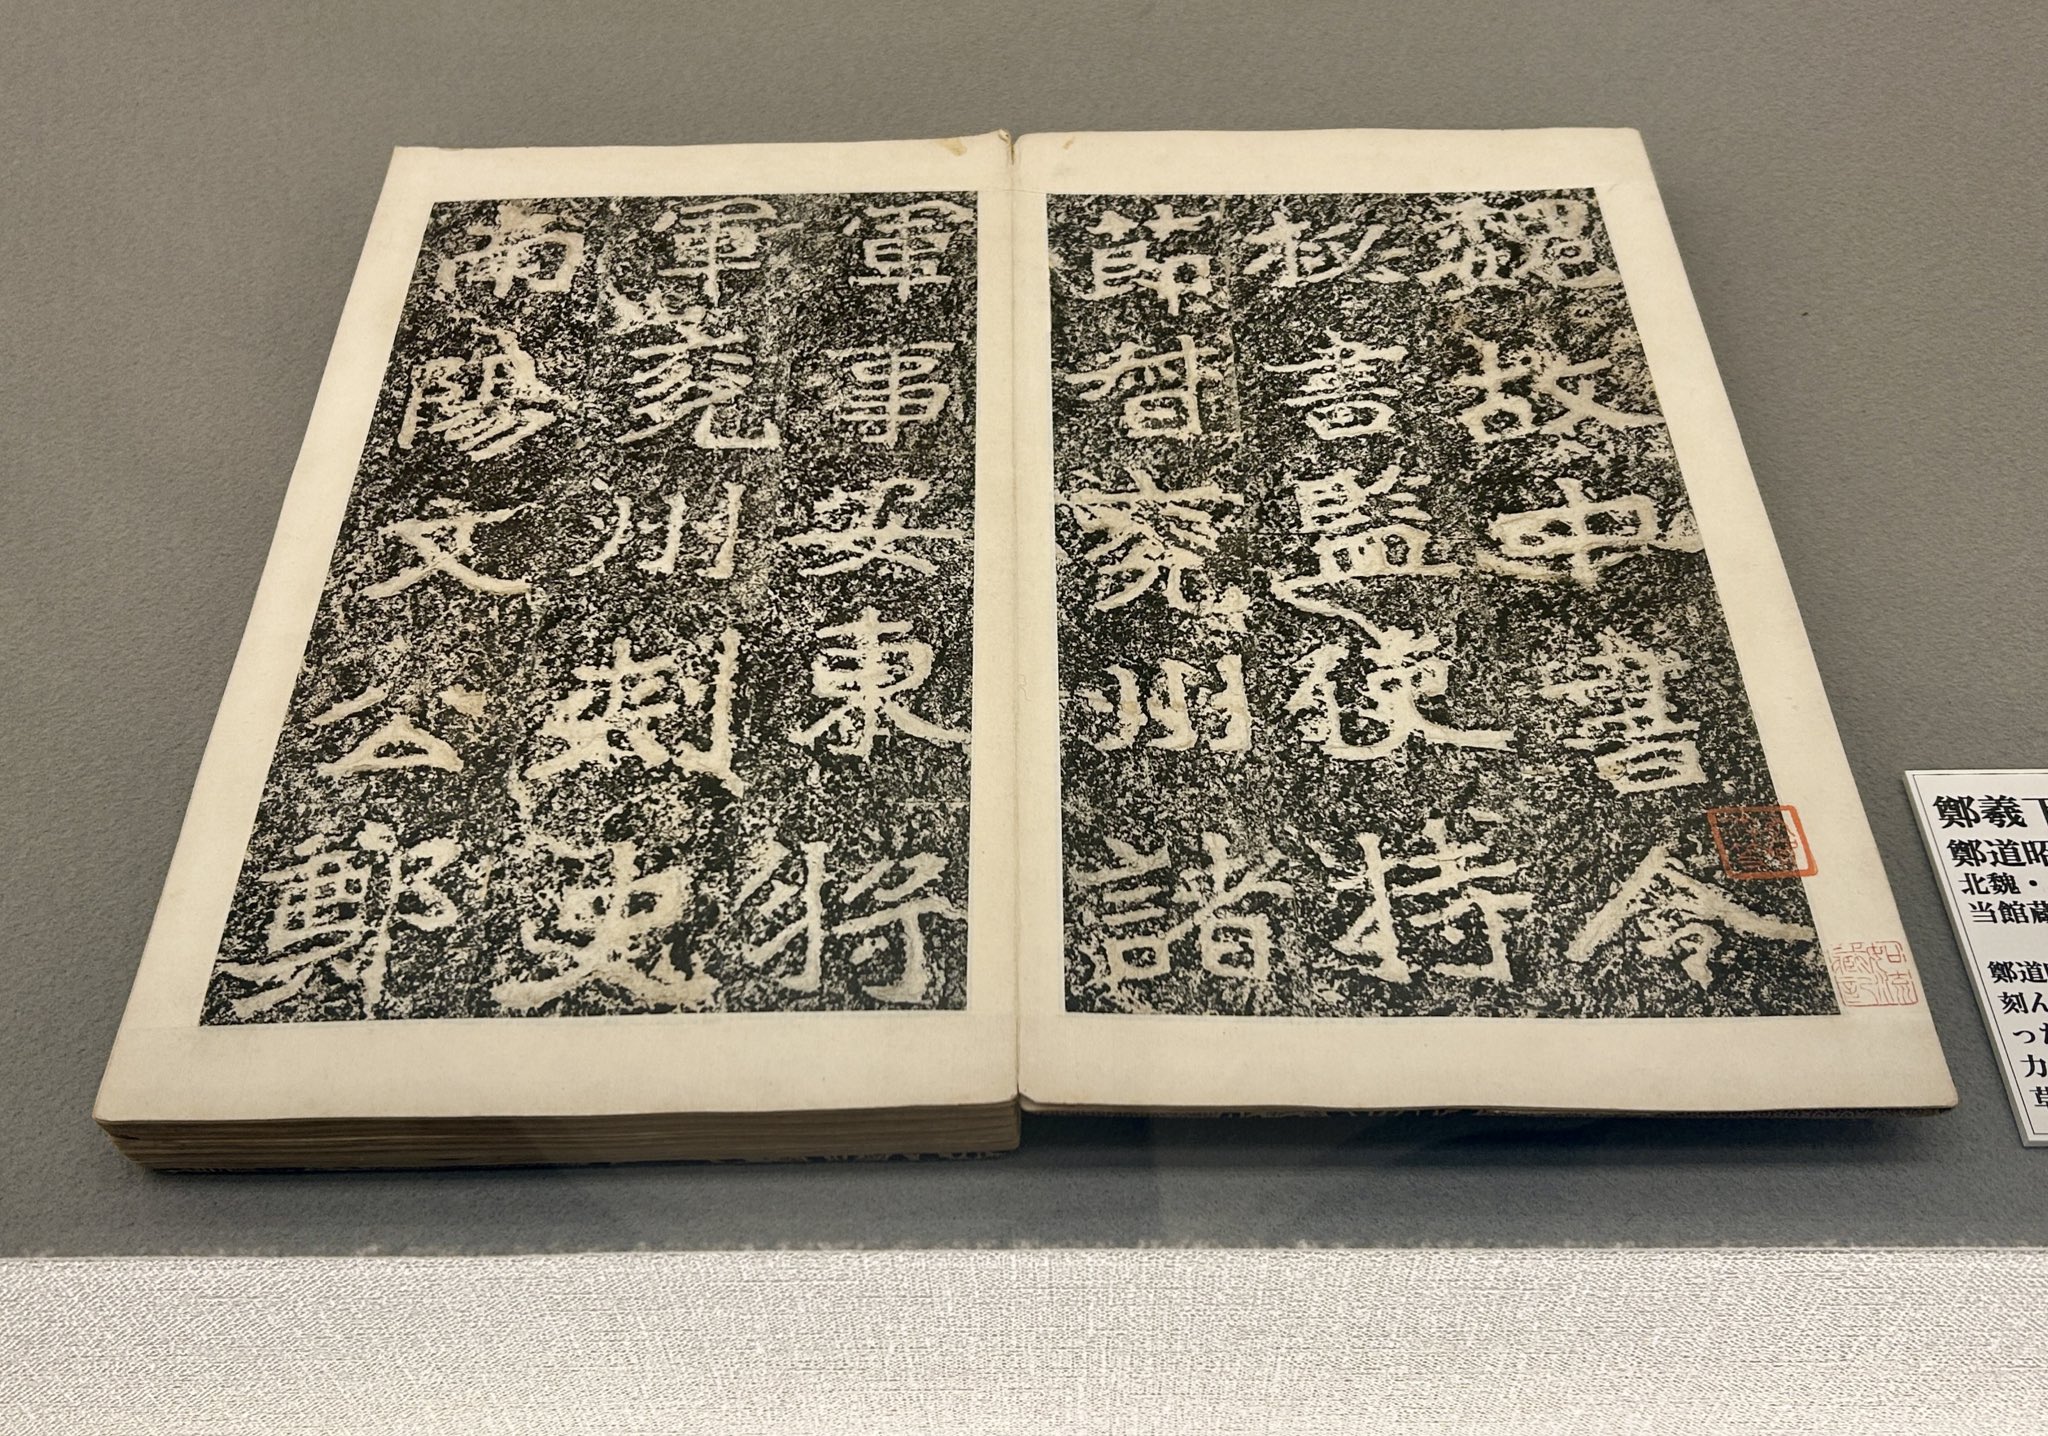 魏故中書令
秘書監使持
節督兖州諸
軍事安東將
軍兖州刺史
南陽文公鄭
鄭羲下
鄭道昭
北魏・
当館蔵
鄭道昭
刻ん
った
力
草